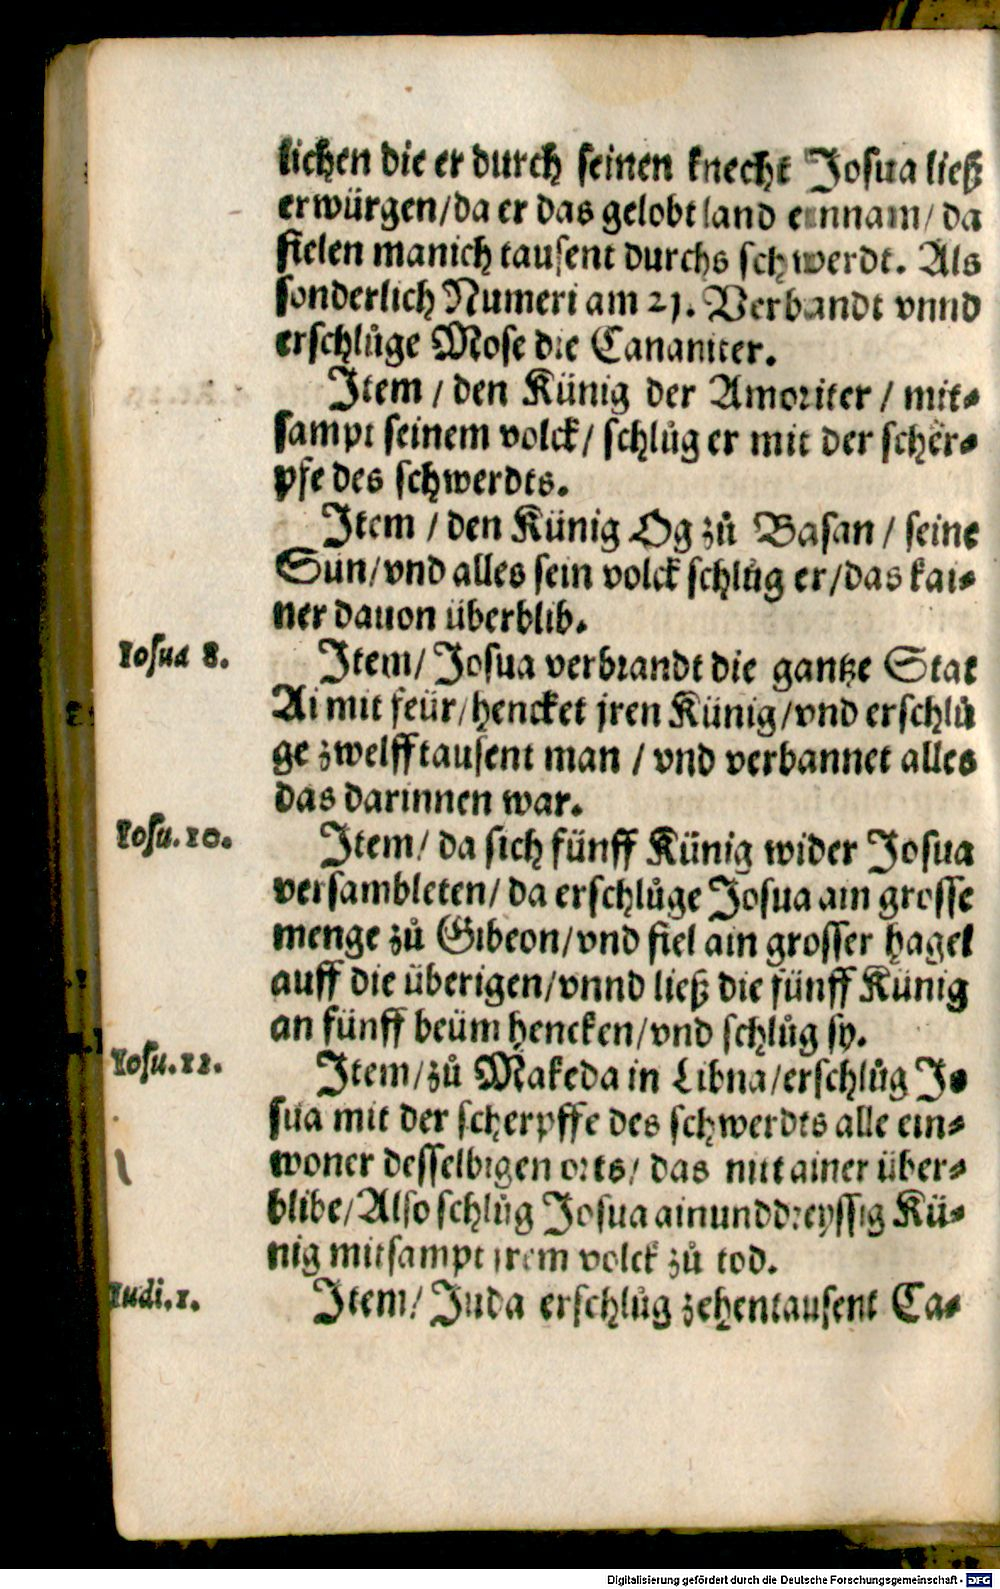 lichen die er durch seinen knecht Josua ließ
erwürgen/da er das gelobt land einnam/da
fielen manich tausent durchs schwerdt. Als
sonderlich Numeri am 21. Verbandt vnnd
erschlůge Mose die Cananiter.
Item / den Künig der Amoriter / mit⸗
sampt seinem volck/ schlůg er mit der scher⸗
pfe des schwerdts.
Item / den Künig Og zů Basan / seine
Sün/vnd alles sein volck schlůg er/das kai⸗
ner dauon überblib.
Iosua 8.
Item/ Josua verbrandt die gantze Stat
Ai mit feür/hencket jren Künig/vnd erschlů
ge zwelfftausent man / vnd verbannet alles
das darinnen war.
Iosu.10.
Item/ da sich fünff Künig wider Josua
versambleten/ da erschlůge Josua ain grosse
menge zů Gibeon/vnd fiel ain grosser hagel
auff die überigen/vnnd ließ die fünff Künig
an fünff beüm hencken/vnd schlůg sy.
Iosu.12.
Item/zů Makeda in Libna/erschlůg Jo
sua mit der scherpffe des schwerdts alle ein⸗
woner desselbigen orts/ das nit ainer über⸗
blibe/Also schlůg Josua ainunddreyssig Kü⸗
nig mitsampt jrem volck zů tod.
Iudi.1.
Item/ Juda erschlůg zehentausent Ca⸗
Digitalisierung gefördert durch die Deutsche Forschungsgemeinschaft - DFG